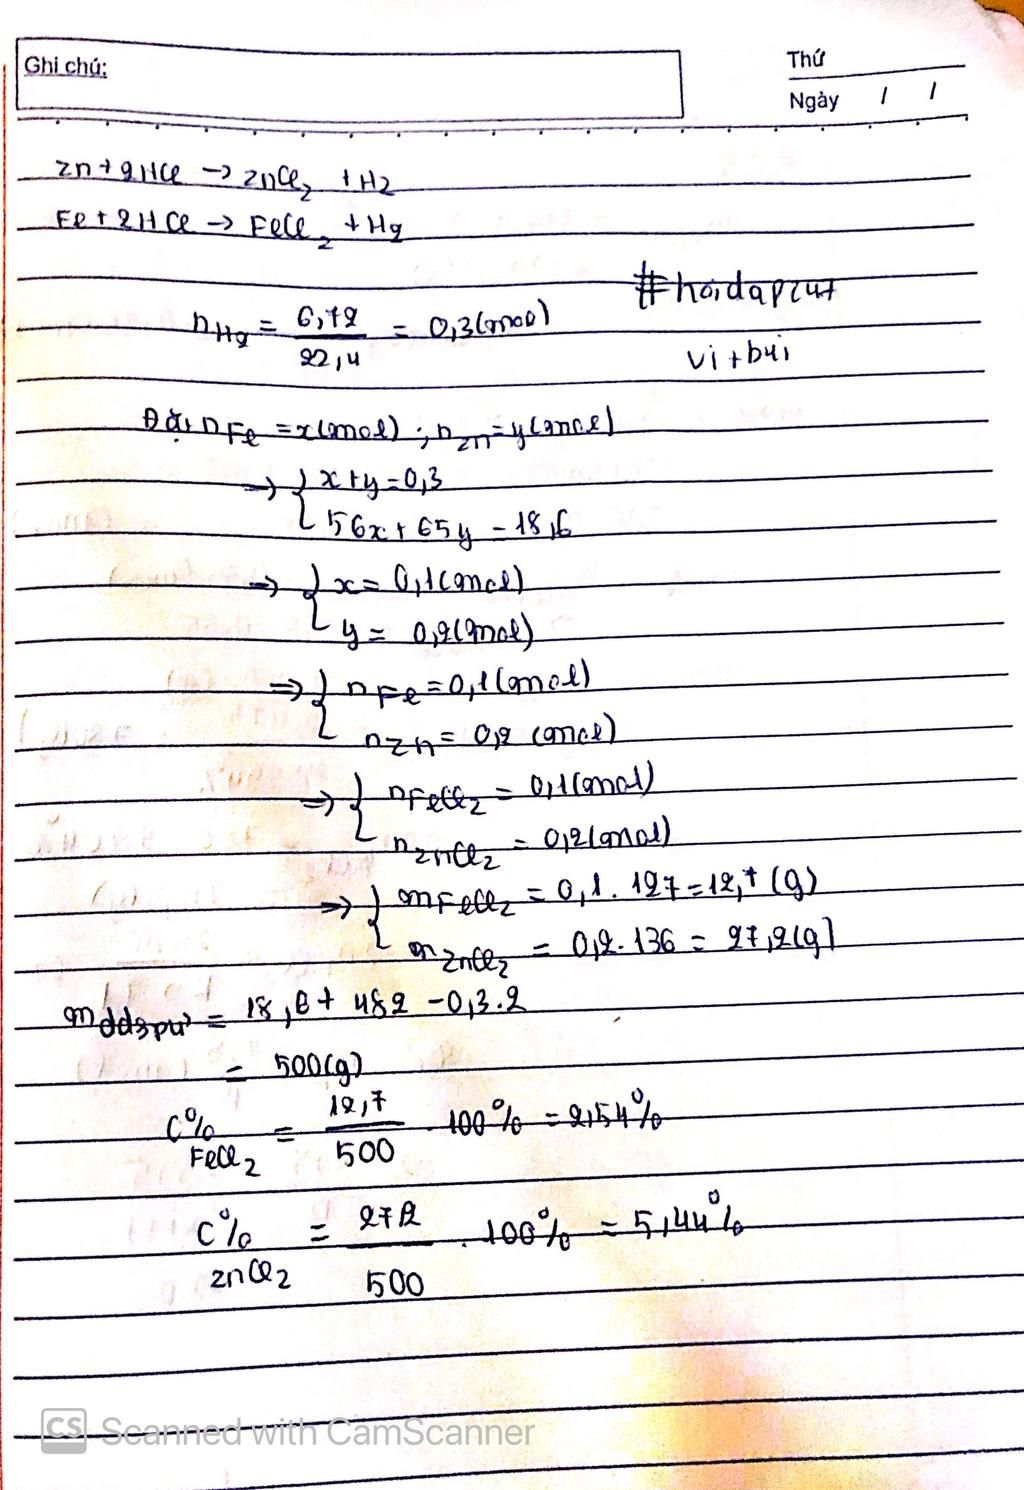 Ghi chú:
Thứ
Ngày / /
Zn + 2HCl -> ZnCl2 + H2
Fe + 2HCl -> FeCl2 + H2
#hoidap247
nH2 = 6,72/22,4 = 0,3(mol)
vitbui
Đặt nFe = x(mol) ; nZn = y(mol)
=> { x+y=0,3
56x + 65y = 18,6
=> { x = 0,1(mol)
y = 0,2(mol)
=> { nFe = 0,1(mol)
nZn = 0,2 (mol)
=> { nFeCl2 = 0,1(mol)
nZnCl2 = 0,2(mol)
=> { mFeCl2 = 0,1 . 127 = 12,7 (g)
mZnCl2 = 0,2 . 136 = 27,2(g)
mddspư = 18,6 + 482 - 0,3.2
= 500(g)
C% FeCl2 = 12,7/500 . 100% = 2,54%
C% ZnCl2 = 27,2/500 . 100% = 5,44%
CS Scanned with CamScanner